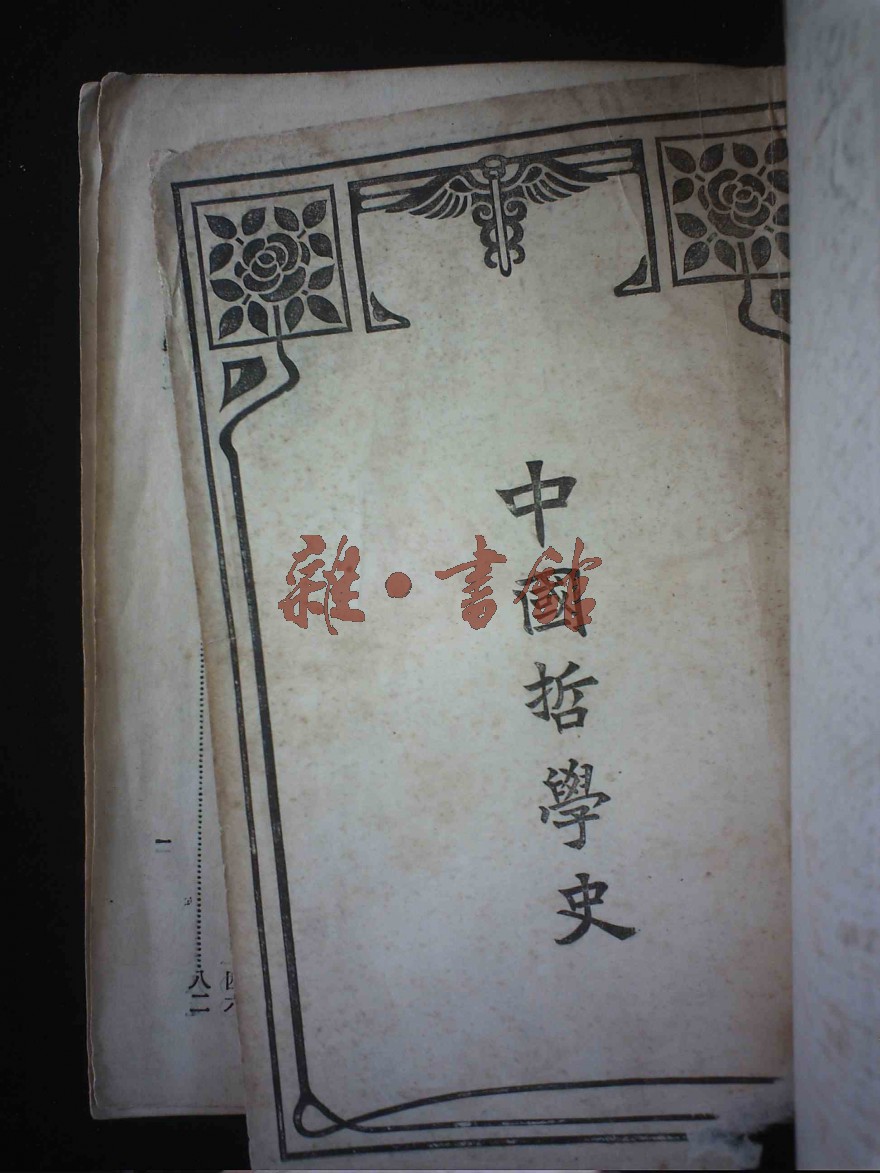 中國哲學史
雜·書館
一
八二